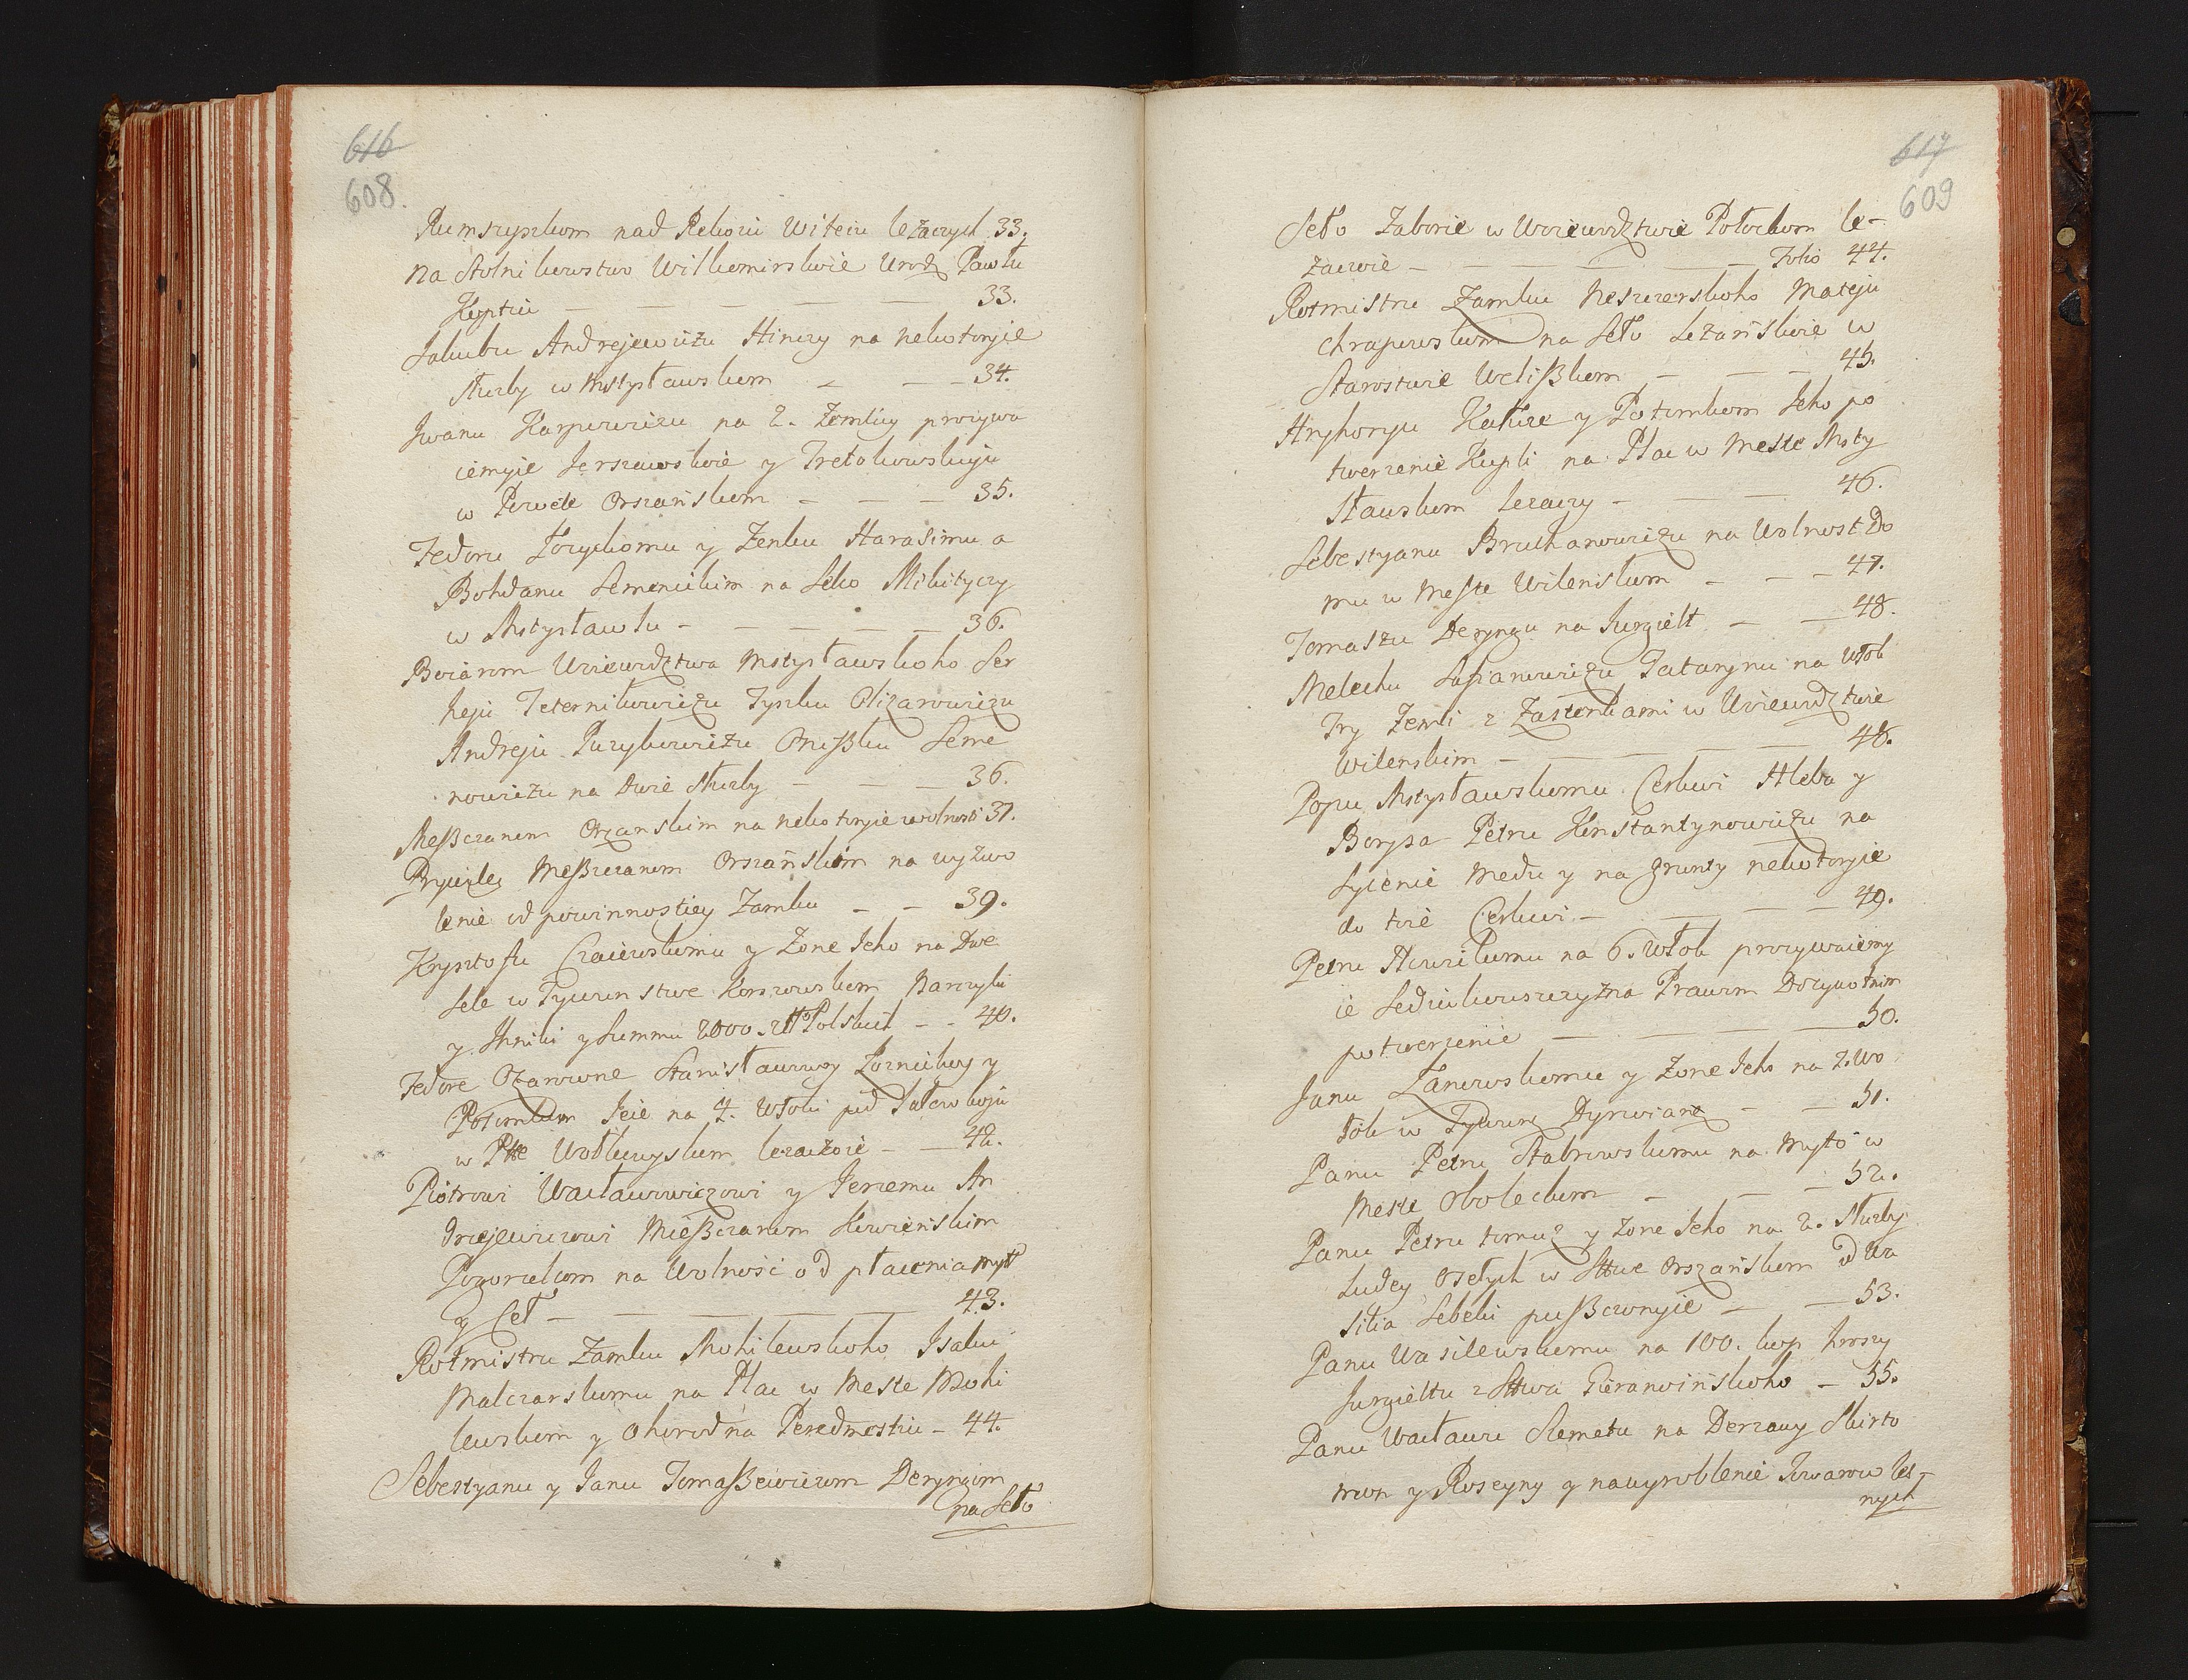 616
608.
Rumszyszkom nad Rekoiu Witeiu leżaczych 33.
Na Stolnikowstwo Wilkomirskoie Urodz Pawłu
Kuptiu — — — — — 33.
Jakubu Andrejewiczu Hinczy na nekotoryie
służby w Mstysławskom — — — 34.
Iwanu Karpowiczu na 2. Zemlicy prozywa
iemyie Jerszewskoie y Tretiakowskuju
w Powete Orszańskom — — — 35.
Fedoru Zoryckomu y Zenku Harasimu a
Bohdanu Semenickim na Seło Mikityczy
w Mstysławlu — — — — — 36.
Boiarom Woiewodztwa Mstysławskoho Ser
heju Teternikowiczu Tyszku Olizarowiczu
Andreju Puzykowiczu Onißku Seme
nowiczu na Dwie służby — — — 36.
Meßczanom Orszanskim na nekotoryie wolnosti 37.
Prywiley Meßczanom Orszańskim na wyzwo
lenie od powinnostiey Zamku — — 39.
Krysztofu Czaiewskomu y Żone Jeho na Dwe
sele w Tywunstwe Korszowskom Barczyki
y Jkniki y Summu 2000. zł Polskich — — 40.
Fedore Ożarowne Stanisławowoy Łoznickoy y
Potomkom Jeie na 4. Włoki pod
w Ptte Wołkowyskom leżaczoie — — 42.
Piotrowi Wacławowiczowi y Jerzemu An
drzejewiczowi Mießczanom Kowieńskim
Pogorzelcom na Wolność od płacenia myt
y Ceł — — — — — 43.
Rotmistru Zamku Mohilewskoho Isaku
Malczarskomu na Plac w Meste Mohi
lewskom y Ohorod na Peredmestiu — 44.
Sebestyanu y Janu Tomaßewiczom Deryngom
na Seło
617
609
Seło Zaborie w Woiewodztwie Połockom le-
żaczoie — — — — — Folio 44.
Rotmistru Zamku Neszczerskoho Mateju
Chrapowskomu na Seło Leżańskoie w
Starostwie Uelißkom — — — 45.
Hryhoryu Kałuże y Potomkom Jeho po
twerzenie Kupli na Plac w Meste Msty
sławskom leżaczy — — 46.
Sebestyanu Bruchanowiczu na Wolnost Do
mu w Meste Wilenskom — — — 47.
Tomaszu Deryngu na Jurgielt — — 48.
Melechu Tatarynu na Włok
Try Zemli z Zastenkami w Woiewodztwie
Wilenskim — — — — — 48.
Popu Mstysławskomu Cerkwi Hleba y
Borysa Petru Konstantynowiczu na
Sycenie Medu y na grunty nekotoryie
do toie Cerkwi — — — 49.
Petru Hawrikomu na 6. Włok prozywaiemy
ie Prawom Dożywotnim
potwerzenie — — — — 50.
Janu Zanowskomu y Żone Jeho na 7. Wo
łok w Tywunz Dyrwianz — — 51.
Panu Petru Stabrowskomu na Myto w
Meste Oboleckom — — — 52.
Panu Petru y żone Jeho na 2. służby
Ludey osełych w Sttwe Orszańskom od Wa
silia pußczonyie — — 53.
Panu Wasilewskomu na 100. kop hroszy
Jurgieltu z Sttwa Gieranoińskoho — 55.
Panu Wacławu Szemetu na Derżawy Skirto
mon y Roseyny y na wyroblenie Towarow les-
nych